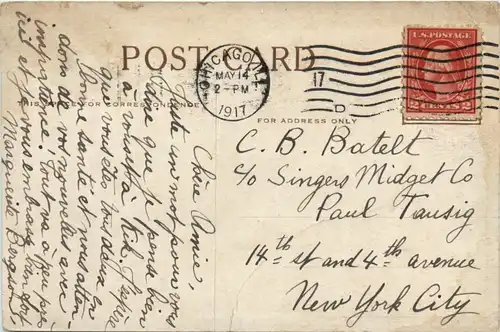 POST CARD
CHICAGO, ILL.
MAY 14
2-PM
1917
17
D
U.S. POSTAGE
2 CENTS 2
THIS SPACE FOR CORRESPONDENCE
FOR ADDRESS ONLY
Chère Amie,
Juste un mot pour vous
dire que je pense bien
à vous et à J'espère
que vous êtes tous deux en
bonne santé et nous atten-
dons de vos nouvelles avec
impatience. Tout va à peu près
ici et je vous embrasse bien fort
Marguerite Berget
C. B. Batelt
c/o Singers Midget Co
Paul Tausig
14th st and 4th avenue
New York City